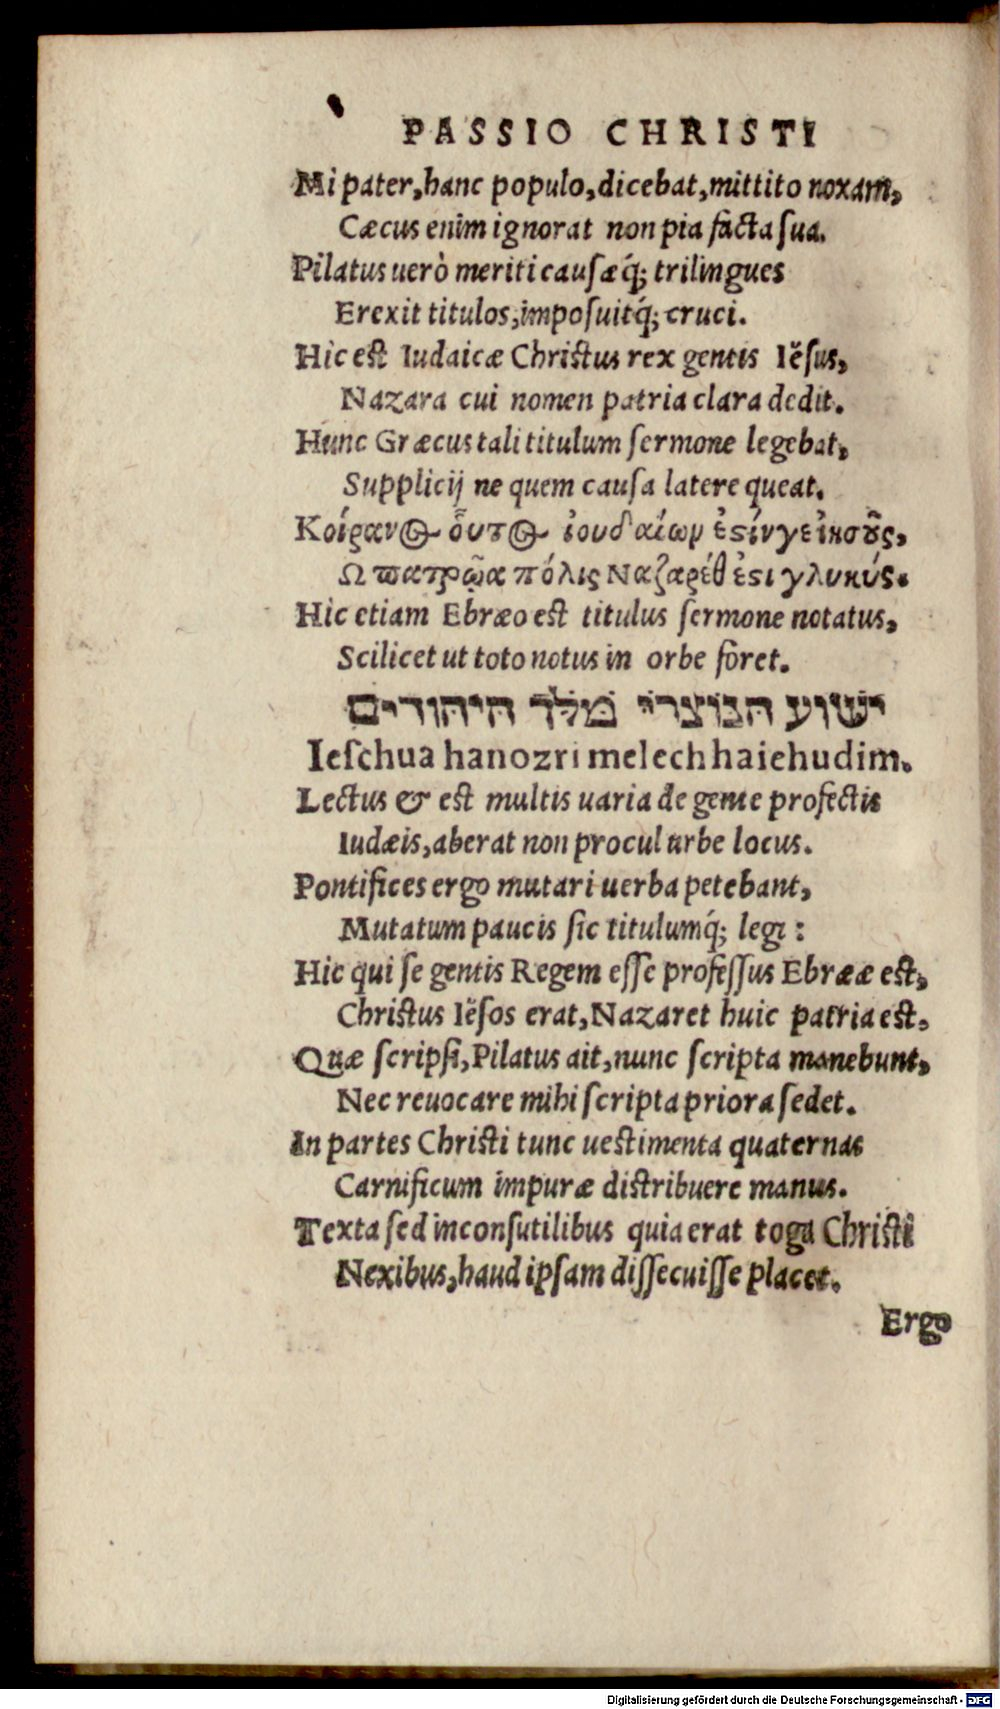 PASSIO CHRISTI
Mi pater, hanc populo, dicebat, mittito noxam,
Cæcus enim ignorat non pia facta sua.
Pilatus uerò meriti causæq́; trilingues
Erexit titulos, imposuitq́; cruci.
Hic est Iudaicæ Christus rex gentis Iësus,
Nazara cui nomen patria clara dedit.
Hunc Græcus tali titulum sermone legebat,
Supplicij ne quem causa latere queat.
Κοίρανος οὗτος ἰουδαίων ἐςίν γε ἰησοῦς,
Ω πατρῷα πόλις Ναζαρέθ ἐςι γλυκύς.
Hic etiam Ebræo est titulus sermone notatus,
Scilicet ut toto notus in orbe foret.
ישוע הנוצרי מלך היהודים
Ieschua hanozri melech haiehudim.
Lectus & est multis uaria de gente profectis
Iudæis, aberat non procul urbe locus.
Pontifices ergo mutari uerba petebant,
Mutatum paucis sic titulumq́; legi :
Hic qui se gentis Regem esse professus Ebrææ est,
Christus Iësos erat, Nazaret huic patria est.
Quæ scripsi, Pilatus ait, nunc scripta manebunt,
Nec reuocare mihi scripta priora sedet.
In partes Christi tunc uestimenta quaternas
Carnificum impuræ distribuere manus.
Texta sed inconsutilibus quia erat toga Christi
Nexibus, haud ipsam dissecuisse placet.
Ergo
Digitalisierung gefördert durch die Deutsche Forschungsgemeinschaft - DFG